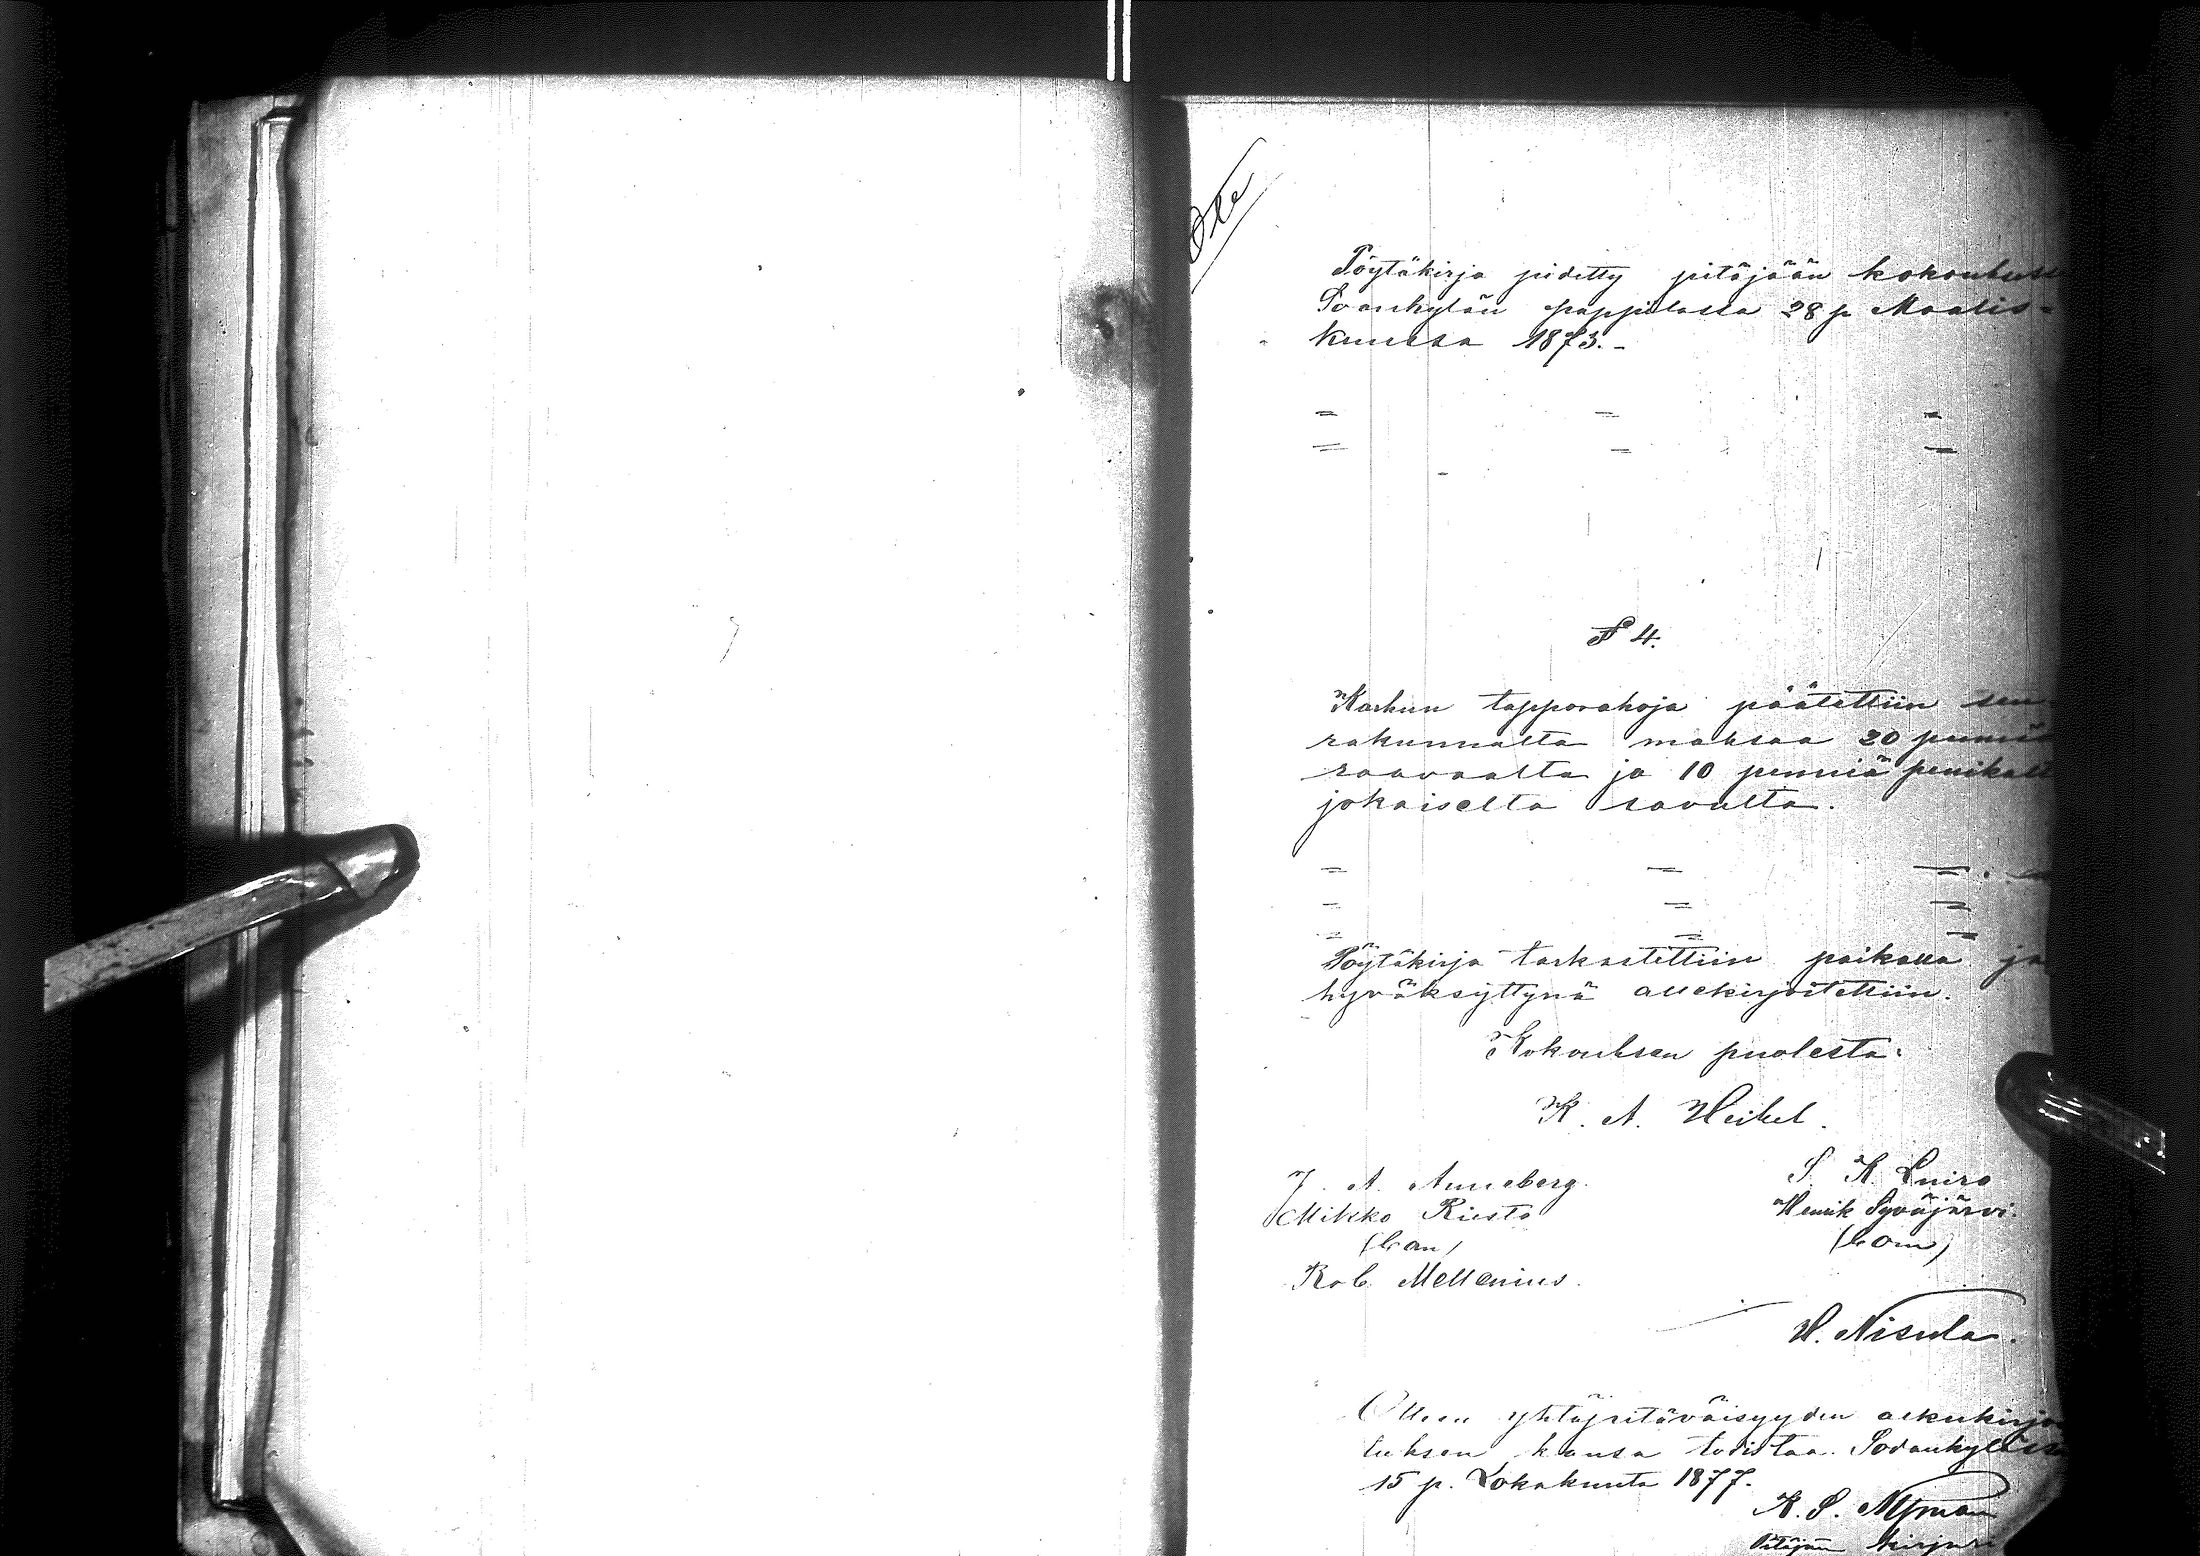 Ote
Pöytäkirja pidetty pitäjään kokoukses
Soankylän pappilassa 28 p. Maalis-
kuussa 1873.-
§ 4.
Karhun tapporahoja päätettiin seu
rakunnalta maksaa 20 penniä
raavaalta ja 10 penniä penikalt
jokaiselta savulta.
Pöytäkirja tarkastettiin paikalla ja
hyväksyttynä allekirjoitettiin.
Kokouksen puolesta:
K. A. Heikel.
J. A. Anneberg.
S. K. Luiro
Mikko Riesto
Henrik Syväjärvi.
Rob Mellenius.
H. Nisula.
yhtäpitäväisyyden alkukirjo
tuksen kansa todistaa. Sodankylässä
15 p. Lokakuuta 1877.
K. S. Nyman
Pitäjän kirjuri